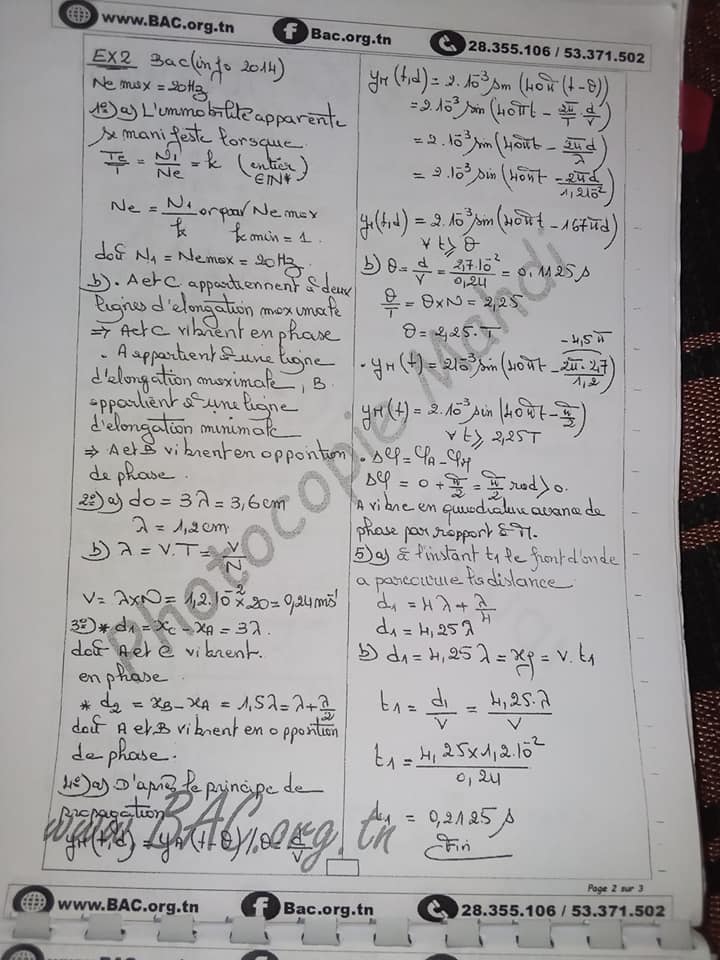 www.BAC.org.tn
Bac.org.tn
28.355.106 / 53.371.502
EX2 Bac(info 2014)
Ne max = 20Hz
1°) a) L'immobilité apparente
se manifeste lorsque
Te/T = N1/Ne = k (entier ∈ IN*)
Ne = N1/k or par Ne max
k min = 1.
doù N1 = Ne max = 20Hz
b) . A et C appartiennent à deux
lignes d'élongation maximale
⇒ A et C vibrent en phase
. A appartient à une ligne
d'élongation maximale, B
appartient à une ligne
d'élongation minimale
⇒ A et B vibrent en opposition
de phase.
2°) a) d0 = 3λ = 3,6cm
λ = 1,2cm
b) λ = V.T = V/N
V = λxN = 1,2.10^-2 x 20 = 0,24ms^-1
3°) * d1 = xC - xA = 3λ.
doù A et C vibrent.
en phase
* d2 = xB - xA = 1,5λ = λ + λ/2
doù A et B vibrent en opposition
de phase.
4°) a) D'après le principe de
propagation
yM(t,d) = yA(t-θ) / θ = d/V
yM(t,d) = 2.10^-3 sin(40πt (t-θ))
= 2.10^-3 sin(40πt - 2π/T d/V)
= 2.10^-3 sin(40πt - 2πd/λ)
= 2.10^-3 sin(40πt - 2πd/1,2.10^-2)
yM(t,d) = 2.10^-3 sin(40πt - 167πd)
∀ t ≥ θ
b) θ = d/V = 2,7.10^-2/0,24 = 0,1125s
θ/T = θxN = 2,25
θ = 2,25.T
-4,5π
. yM(t) = 2.10^-3 sin(40πt - 2π.2,7/1,2)
yM(t) = 2.10^-3 sin(40πt - π/2)
∀ t ≥ 2,25T
. Δφ = φA - φM
Δφ = 0 + π/2 = π/2 rad > 0.
A vibre en quadrature avance de
phase par rapport à M.
5) a) à l'instant t1 le front d'onde
a parcourue la distance
d1 = 4λ + λ/4
d1 = 4,25λ
b) d1 = 4,25λ = xf = V.t1
t1 = d1/V = 4,25.λ/V
t1 = 4,25x1,2.10^-2/0,24
t1 = 0,2125s
Fin
Photocopie Mahdi
www.BAC.org.tn
Page 2 sur 3
www.BAC.org.tn
Bac.org.tn
28.355.106 / 53.371.502